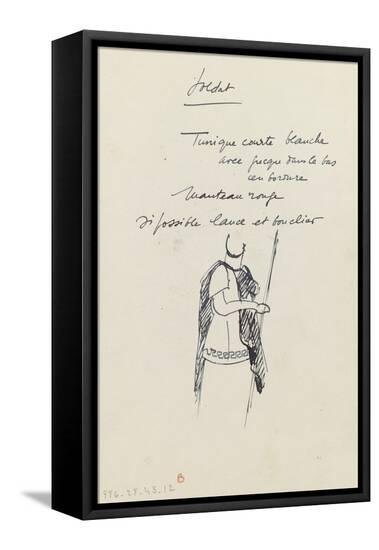 Soldat
Tunique courte blanche
avec grecque dans le bas
en bordure
Manteau rouge
Si possible lance et bouclier
976-28-43.12
B